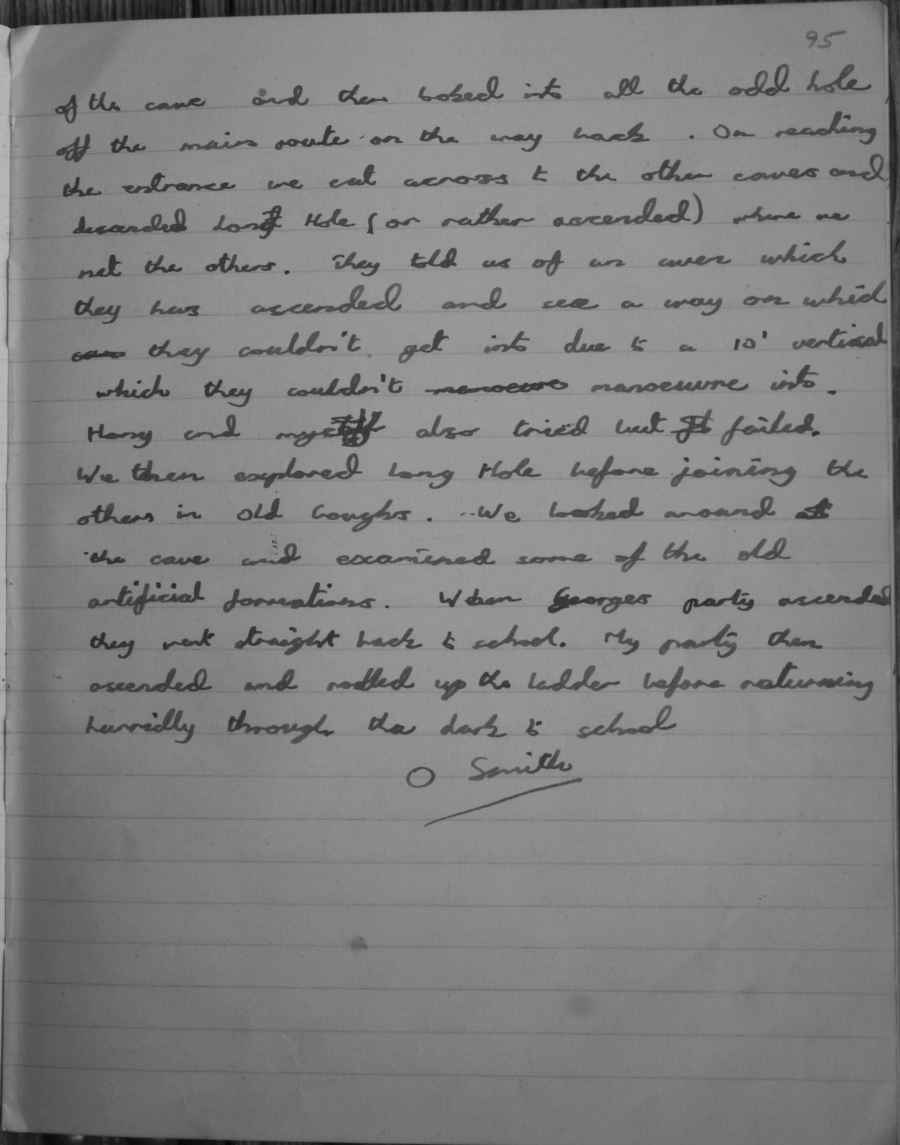 95
of the cave and then looked into all the odd hole
off the main route on the way back. On reaching
the entrance we cut across to the other caves and
descended Long Hole (or rather ascended) where we
met the others. They told us of an aven which
they has ascended and see a way on which
they couldn't get into due to a 10' vertical
which they couldn't manoeuvre manoeuvre into.
Harry and myself also tried but failed.
We then explored Long Hole before joining the
others in Old Goughs. We looked around
the cave and examined some of the old
artificial formations. When Georges party ascended
they went straight back to school. My party then
ascended and rattled up the ladder before returning
hurridly through the dark to school
O Smith